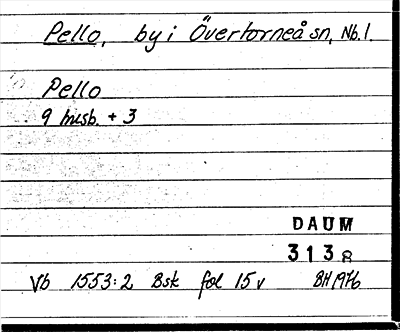 Pello, by i Övertorneå sn, Nb. l.
Pello
9 husb. + 3
DAUM
3138
Vb 1553:2 Bsk fol 15 v BH 1976